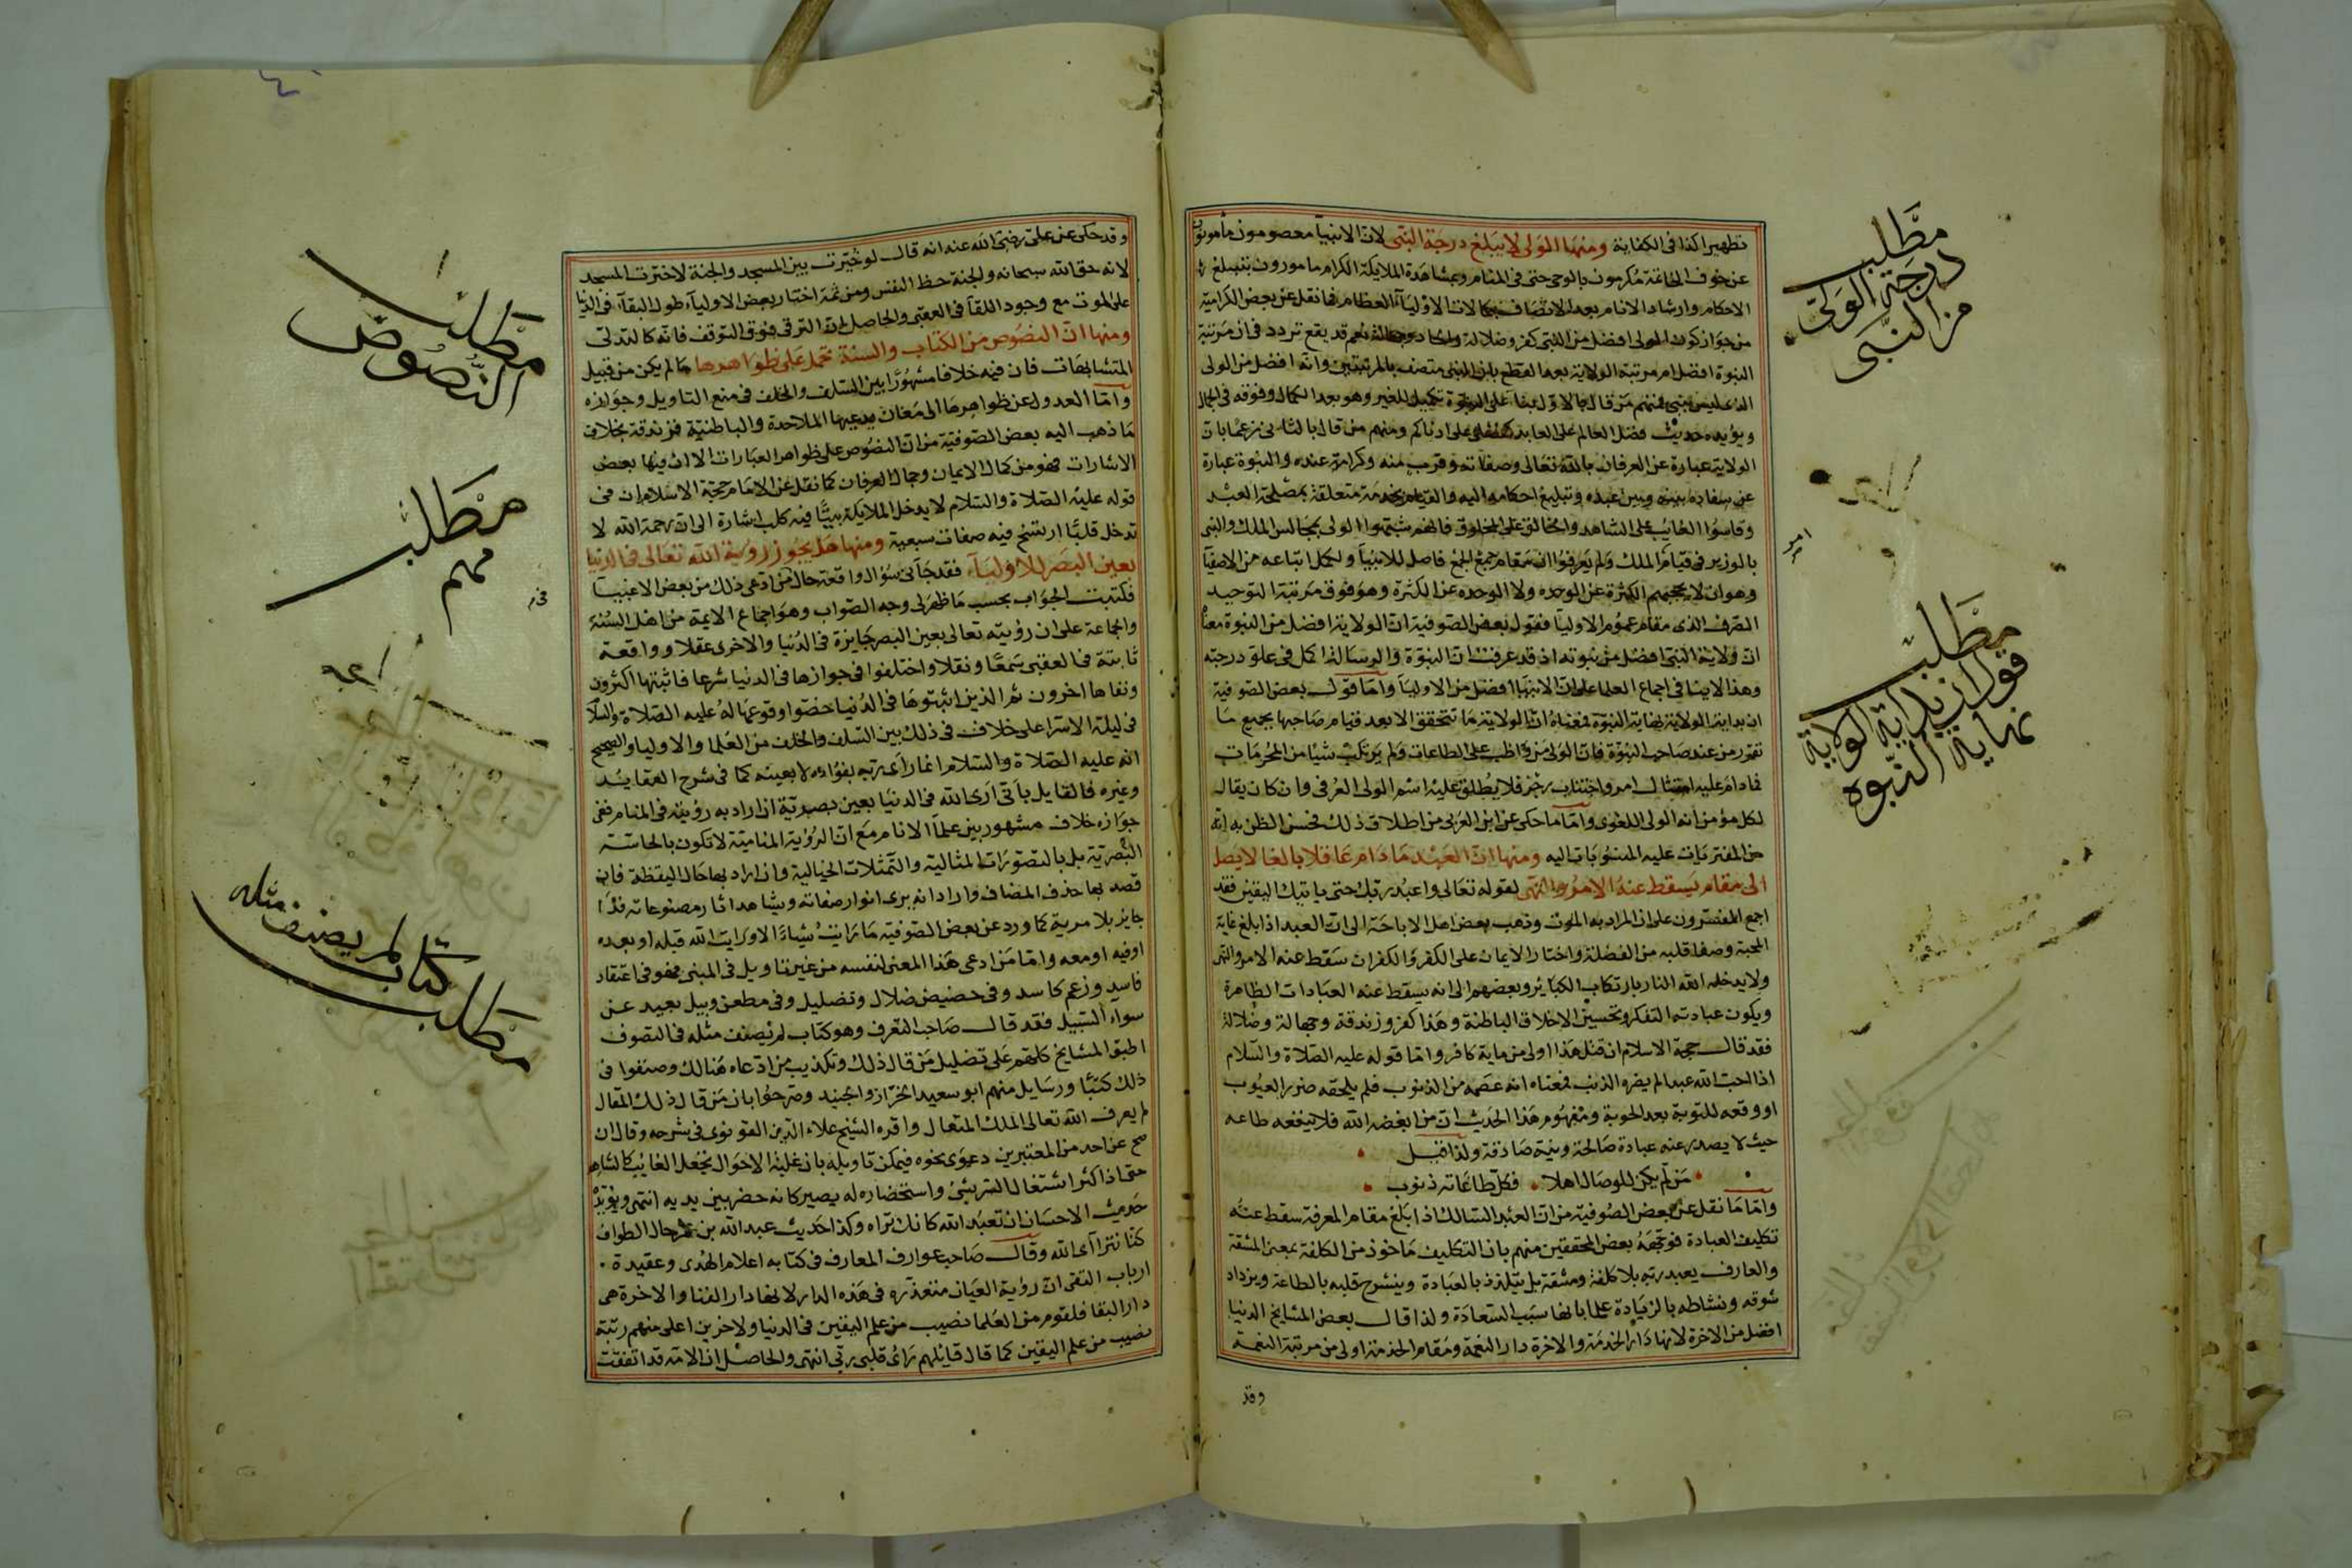 تطهيرا كذا فى الكفاية ومنها ان الولى لا يبلغ درجة النبى لان الانبيا معصومون مأمونون
عن خوف الخاتمة مكرمون بالوحى حتى فى المنام وبمشاهدة الملايكة الكرام مامورون بتبليغ
الاحكام وارشاد الانام بعد الاتصاف بكمالات الاوليآء العظام فما نقل عن بعض الكرامية
من جواز كون الولى افضل من النبى كفر وضلالة والحاد وجهالة نعم قد يقع تردد فى ان مرتبة
النبوة افضل ام مرتبة الولاية بعد القطع بان النبى متصف بالمرتبتين وانه افضل من الولى
الذى ليس بنبى فمنهم من قال بالاول بناء على ان النبوة تكميل للغير وهو بعد الكمال وفوقه فى الجمال
ويؤيده حديث فضل العالم على العابد كفضلى على ادناكم ومنهم من قال بالثانى زعما بان
الولاية عبارة عن العرفان بالله تعالى وصفاته وقرب منه وكرامة عنده والنبوة عبارة
عن سفارة بينه وبين عبده وتبليغ احكامه اليه والقيام بخدمة متعلقة بمصلحة العبد
وقاسوا الغائب على الشاهد والخالق على المخلوق فانهم شبهوا الولى بجالس الملك والنبى
بالوزير فى قيام امر الملك ولم يعرفوا ان مقام جمع الجمع حاصل للانبيآ ولكمل اتباعه من الاصفيآ
وهو ان لا تحجبهم الكثرة عن الوحده ولا الوحدة عن الكثرة وهو فوق مرتبة التوحيد
الصرف الذى مقام عموم الاوليآ فقول بعض الصوفية ان الولاية افضل من النبوة معناه
ان ولاية النبى افضل من نبوته اذ قد عرفت ان النبوة والرسالة اكمل فى علو درجته
وهذا لا ينافى اجماع العلما على ان الانبيآ افضل من الاوليآ واما قول بعض الصوفية
ان بداية الولاية نهاية النبوة فمعناه ان الولاية ما تتحقق الا بعد قيام صاحبها بجميع ما
تقرر من عند صاحب النبوة فان الولى من واظب على الطاعات ولم يرتكب شيا من المحرمات
فما دام عليه امتثال امر واجتناب زجر فلا يطلق عليه اسم الولى العرفى وان كان يقال
لكل مؤمن انه الولى اللغوى واما ما حكى عن ابن العربى من اطلاق ذلك فحسن الظن به انه
من المفتريات عليه المنسوبات اليه ومنها ان العبد ما دام عاقلا بالغا لا يصل
الى مقام يسقط عنه الامر والنهى لقوله تعالى واعبد ربك حتى ياتيك اليقين فقد
اجمع المفسرون على ان المراد به الموت وذهب بعض اهل الاباحة الى ان العبد اذا بلغ غاية
المحبة وصفا قلبه من الغفلة واختار الايمان على الكفر والكفران سقط عنه الامر والنهى
ولا يدخله الله النار بارتكاب الكبائر وبعضهم الى انه يسقط عنه العبادات الظاهرة
ويكون عبادته التفكر وتحسين الاخلاق الباطنة وهذا كفر وزندقة وجهالة وضلالة
فقد قال حجة الاسلام ان قتل هذا اولى من ماية كافر واما قوله عليه الصلاة والسلام
اذا احب الله عبدا لم يضره الذنب فمعناه انه عصمه من الذنوب فلم يلحقه ضرر العيوب
او وفقه للتوبة بعد الحوبة ومفهوم هذا الحديث ان من ابغضه الله فلا ينفعه طاعه
حيث لا يصدر عنه عبادة صالحة ونية صادقة ولذا قيل
من لم يكن للوصال اهلا فكل طاعاته ذنوب
واما ما نقل عن بعض الصوفية من ان العبد السالك اذا بلغ مقام المعرفة سقط عنه
تكليف العبادة فوجهه بعض المحققين منهم بان التكليف ماخوذ من الكلفة بمعنى المشقة
والعارف يعبد ربه بلا كلفة ومشقة بل يتلذذ بالعبادة وينشرح قلبه بالطاعة ويزداد
شوقه ونشاطه بالزيادة علما بانها سبب السعادة ولذا قال بعض المشايخ الدنيا
افضل من الاخرة لانها دار الخدمة والاخرة دار النعمة ومقام الخدمة اولى من مرتبة النعمة
وقد
مطلب
درجة الولى
من النبى
امر
مطلب
قول ان بداية الولاية
نهاية النبوه
وقد حكى عن على رضى الله عنه انه قال لو خيرت بين المسجد والجنة لاخترت المسجد
لانه حق الله سبحانه والجنة حظ النفس ومن ثمة اختار بعض الاوليآء طول البقآء فى الدنيا
على الموت مع وجود اللقآ فى العقبى والحاصل ان الترقى فوق التوقف فانه كالتدلى
ومنها ان النصوص من الكتاب والسنة تحمل على ظواهرها ما لم يكن من قبيل
المتشابهات فان فيه خلافا مشهورا بين السلف والخلف فى منع التاويل وجوازه
واما العدول عن ظواهرها الى معان يدعيها الملاحدة والباطنية فزندقة بخلاف
ما ذهب اليه بعض الصوفية من ان النصوص على ظواهر العبارات الا ان فيها بعض
الاشارات فهو من كمال الايمان وجمال العرفان كما نقل عن الامام حجة الاسلام ان فى
قوله عليه الصلاة والسلام لا يدخل الملايكة بيتا فيه كلب اشارة الى ان رحمة الله لا
تدخل قلبا ارتسخ فيه صفات سبعية ومنها هل يجوز رؤية الله تعالى فى الدنيا
بعين البصر للاوليآء فقد جآنى سؤال واقعة حال ممن ادعى ذلك من بعض الاغبيآ
فكتبت الجواب بحسب ما ظهر لى وجه الصواب وهو اجماع الايمة من اهل السنة
والجماعة على ان رؤيته تعالى بعين البصر جايزة فى الدنيا والاخرى عقلا وواقعة
ثابتة فى العقبى سمعا ونقلا واختلفوا فى جوازها فى الدنيا شرعا فاثبتها اكثرون
ونفاها اخرون ثم الذين اثبتوها فى الدنيا خصوا وقوعها له عليه الصلاة والسلام
فى ليلة الاسرا على خلاف فى ذلك بين السلف والخلف من العلما والاوليا والصحيح
انه عليه الصلاة والسلام انما رآى ربه بفؤاده لا بعينه كما فى شرح العقايد
وغيره فالقايل بانى ارى الله فى الدنيا بعين بصرية ان اراد به رؤيته فى المنام ففى
جوازه خلاف مشهور بين علمآ الانام مع ان الرؤية المنامية لا تكون بالحاسة
البصرية بل بالتصورات المثالية والتمثلات الخيالية وان اراد بها حال اليقظة فان
قصد بها حذف المضاف واراد انه يرى انوار صفاته ويشاهد اثار مصنوعاته فذا
جايز بلا مرية كما ورد عن بعض الصوفية ما رايت شياء الا ورايت الله قبله او بعده
او فيه او معه واما من ادعى هذا المعنى لنفسه من غير تاويل فى المبنى فهو فى اعتقاد
فاسد وزعم كاسد وفى حضيض ضلال وتضليل وفى مطعن وبيل بعيد عن
سواء السبيل فقد قال صاحب التعرف وهو كتاب لم يصنف مثله فى التصوف
اطبق المشايخ كلهم على تضليل من قال ذلك وتكذيب من ادعاه هنالك وصنفوا فى
ذلك كتبا ورسايل منهم ابو سعيد الخراز والجنيد وصرحوا بان من قال ذلك المقال
لم يعرف الله تعالى الملك المتعال واقره الشيخ علاء الدين القونوى فى شرحه وقال ان
صح عن احد من المعتبرين دعوى نحوه فيمكن تاويله بان غلبة الاحوال تجعل الغايب كالشاهد
حتى اذا كثر اشتغال السر بشئ واستحضاره له يصير كانه حضر بين يديه انتهى ويؤيده
حديث الاحسان ان تعبد الله كانك تراه وكذا حديث عبد الله بن عمر حال الطواف
كنا نترآى الله وقال صاحب عوارف المعارف فى كتابه اعلام الهدى وعقيدة
ارباب التقى ان رؤية العيان متعذره فى هذه الدار لانها دار الفنا والاخرة هى
دار البقا فلقوم من العلما نصيب من علم اليقين فى الدنيا ولاخرين اعلى منهم رتبة
نصيب من علم اليقين كما قال قايلهم رأى قلبى ربى انتهى والحاصل ان الامة قد اتفقت
مطلب
النصوص
مطلب
مهم
مطلب
كتاب لم يصنف مثله